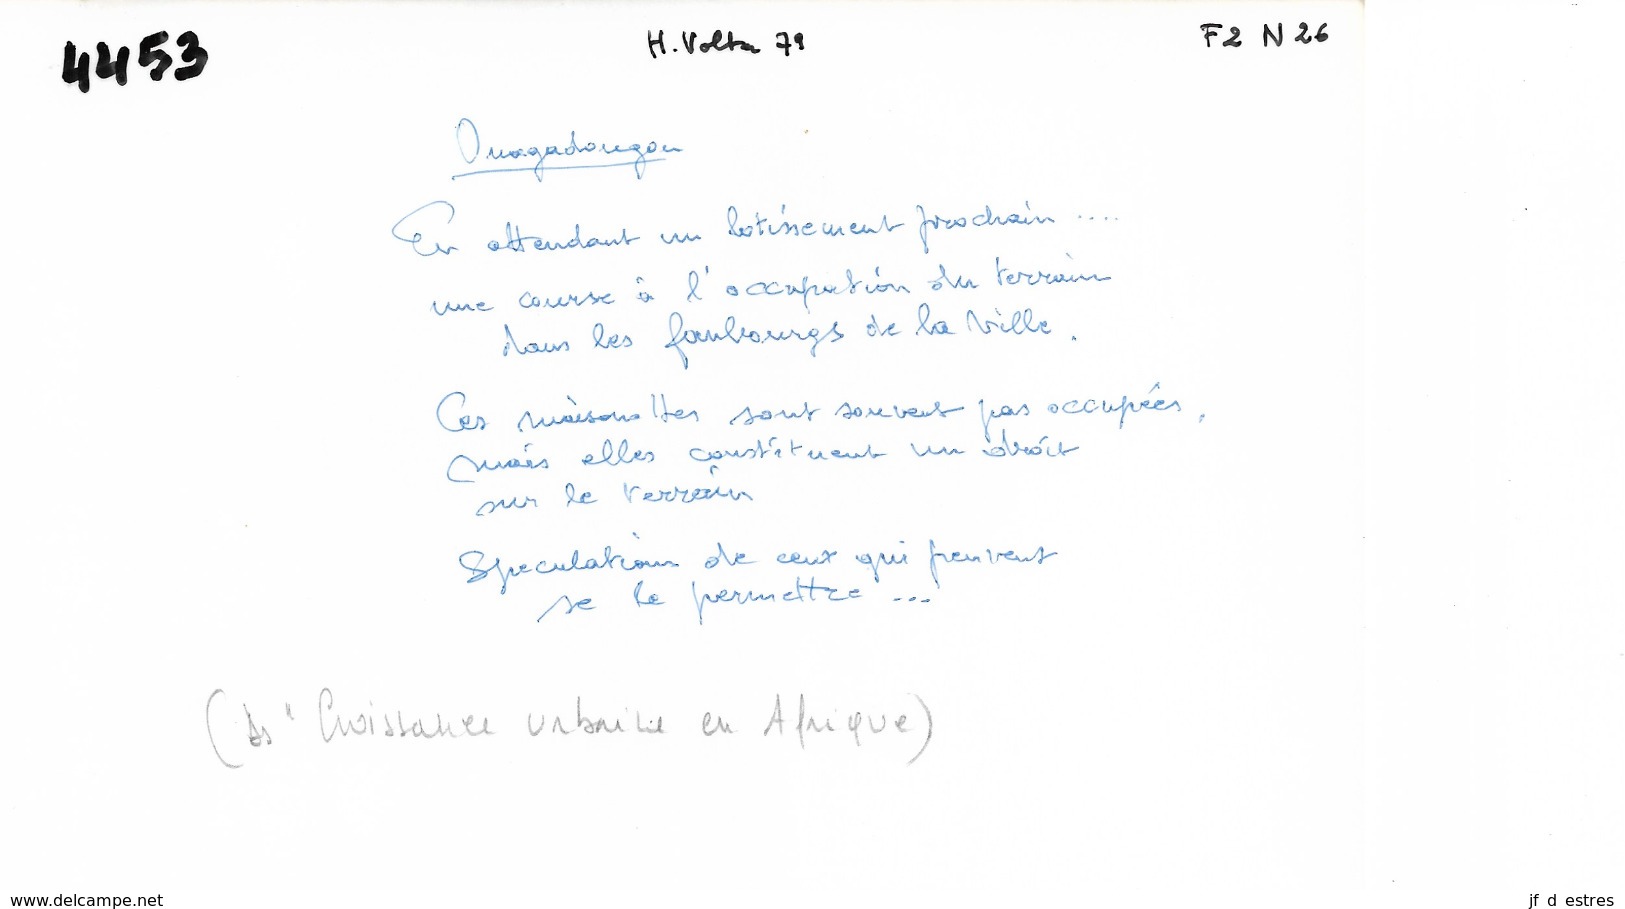 4453
H. Volta 79
F2 N 26
Ouagadougou
En attendant un lotissement prochain ....
une course à l'occupation du terrain
dans les faubourgs de la ville.
Ces maisonnettes sont souvent pas occupées,
mais elles constituent un droit
sur le terrain
Speculations de ceux qui peuvent
se le permettre ...
(ds " Croissance urbaine en Afrique)
www.delcampe.net
jf d estres